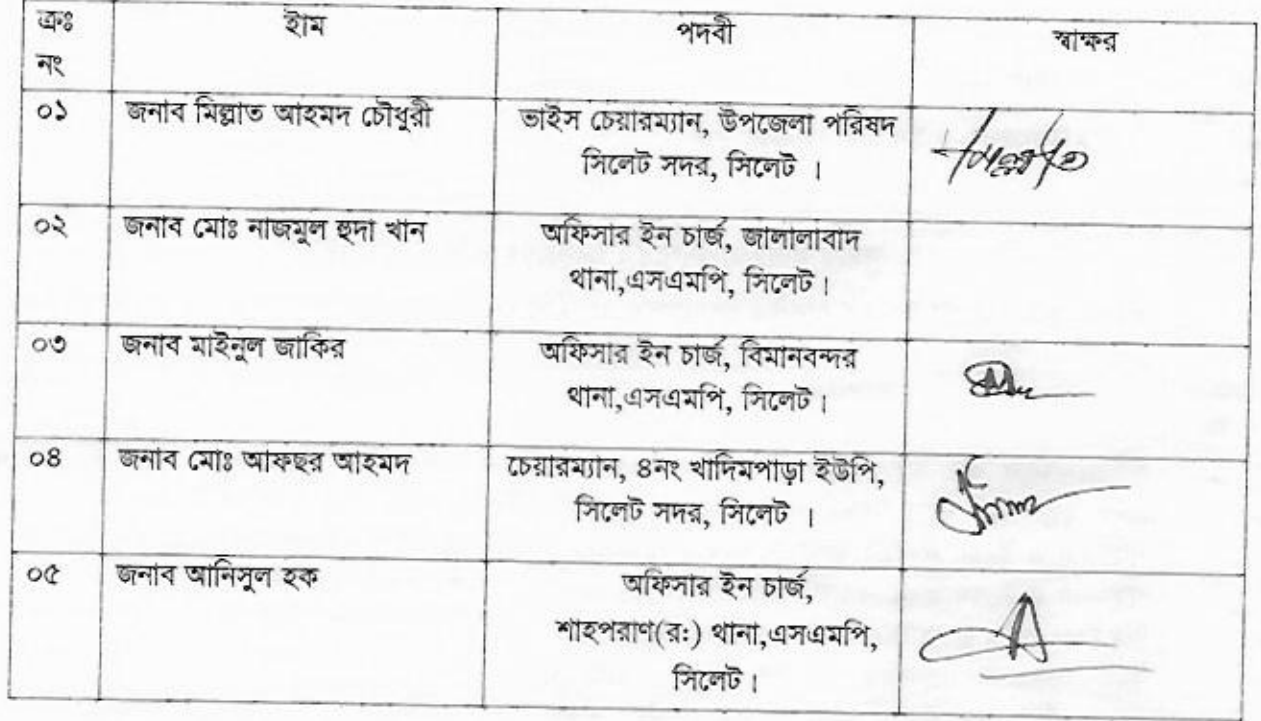 ক্রঃ নং ইাম পদবী স্বাক্ষর
০১ জনাব মিল্লাত আহমদ চৌধুরী ভাইস চেয়ারম্যান, উপজেলা পরিষদ
সিলেট সদর, সিলেট ।
০২ জনাব মোঃ নাজমুল হুদা খান অফিসার ইন চার্জ, জালালাবাদ
থানা,এসএমপি, সিলেট।
০৩ জনাব মাইনুল জাকির অফিসার ইন চার্জ, বিমানবন্দর
থানা,এসএমপি, সিলেট।
০৪ জনাব মোঃ আফছর আহমদ চেয়ারম্যান, ৪নং খাদিমপাড়া ইউপি,
সিলেট সদর, সিলেট ।
০৫ জনাব আনিসুল হক অফিসার ইন চার্জ,
শাহপরাণ(র:) থানা,এসএমপি,
সিলেট।